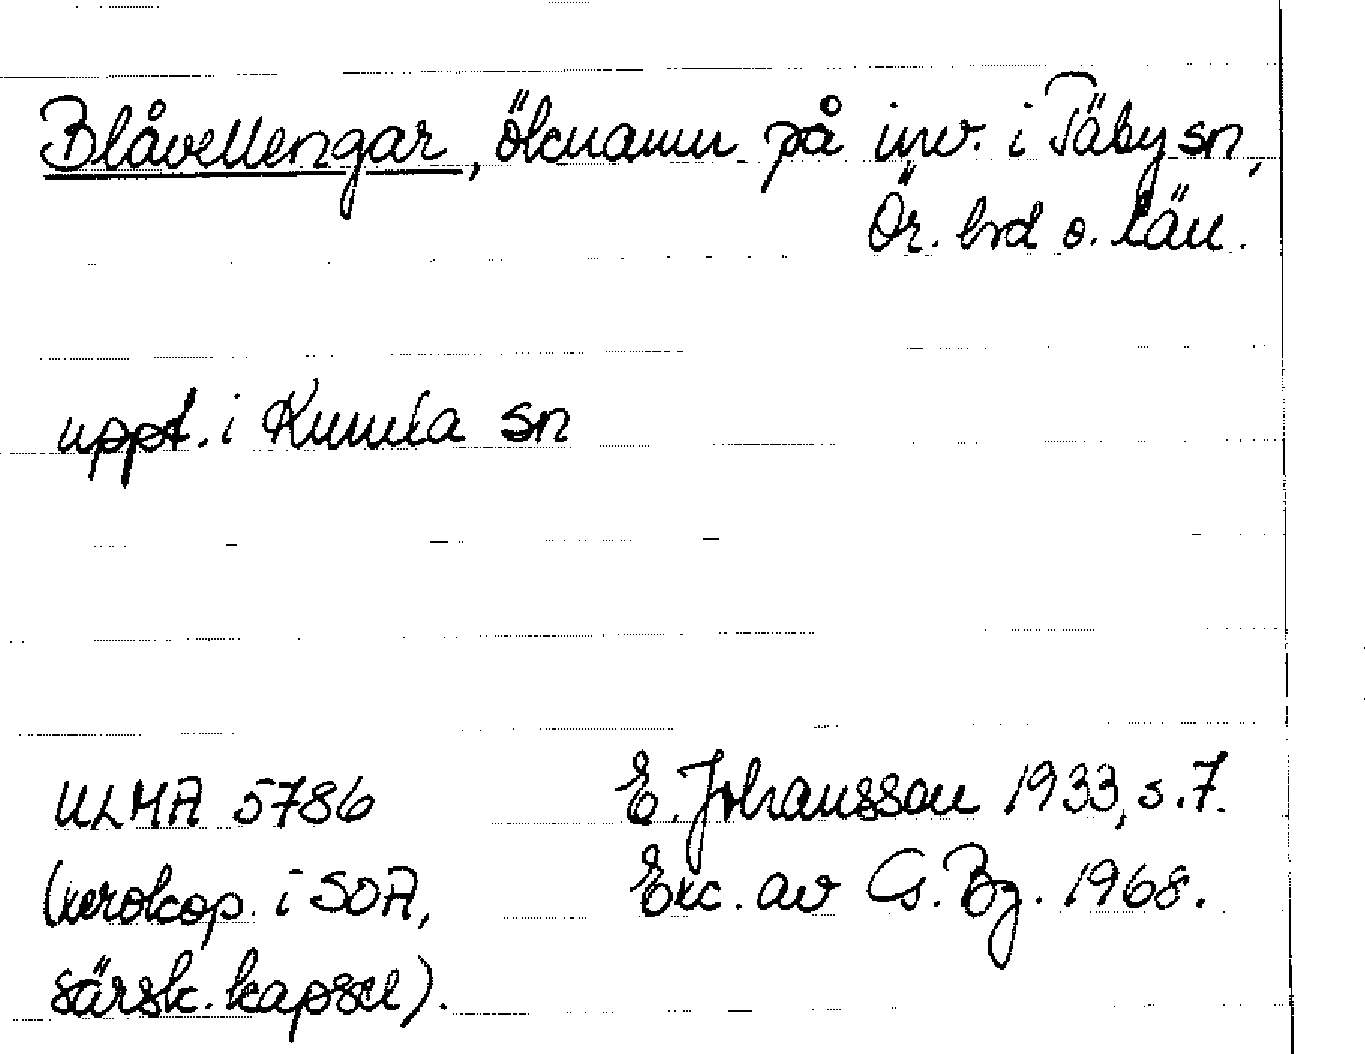 Blåvellengar, öknamn på inv. i Täby sn,
Ör. hrd o. län.
uppt. i Kumla sn
ULMA 5786
E. Johansson 1933, s. 7.
(xerokop. i SOA,
Exc. av G. Bg. 1968.
särsk. kapsel).